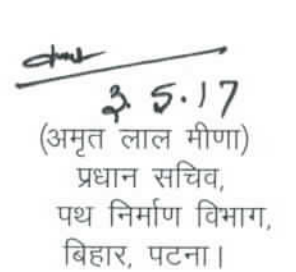 3.5.17
(अमृत लाल मीणा)
प्रधान सचिव,
पथ निर्माण विभाग,
बिहार, पटना।